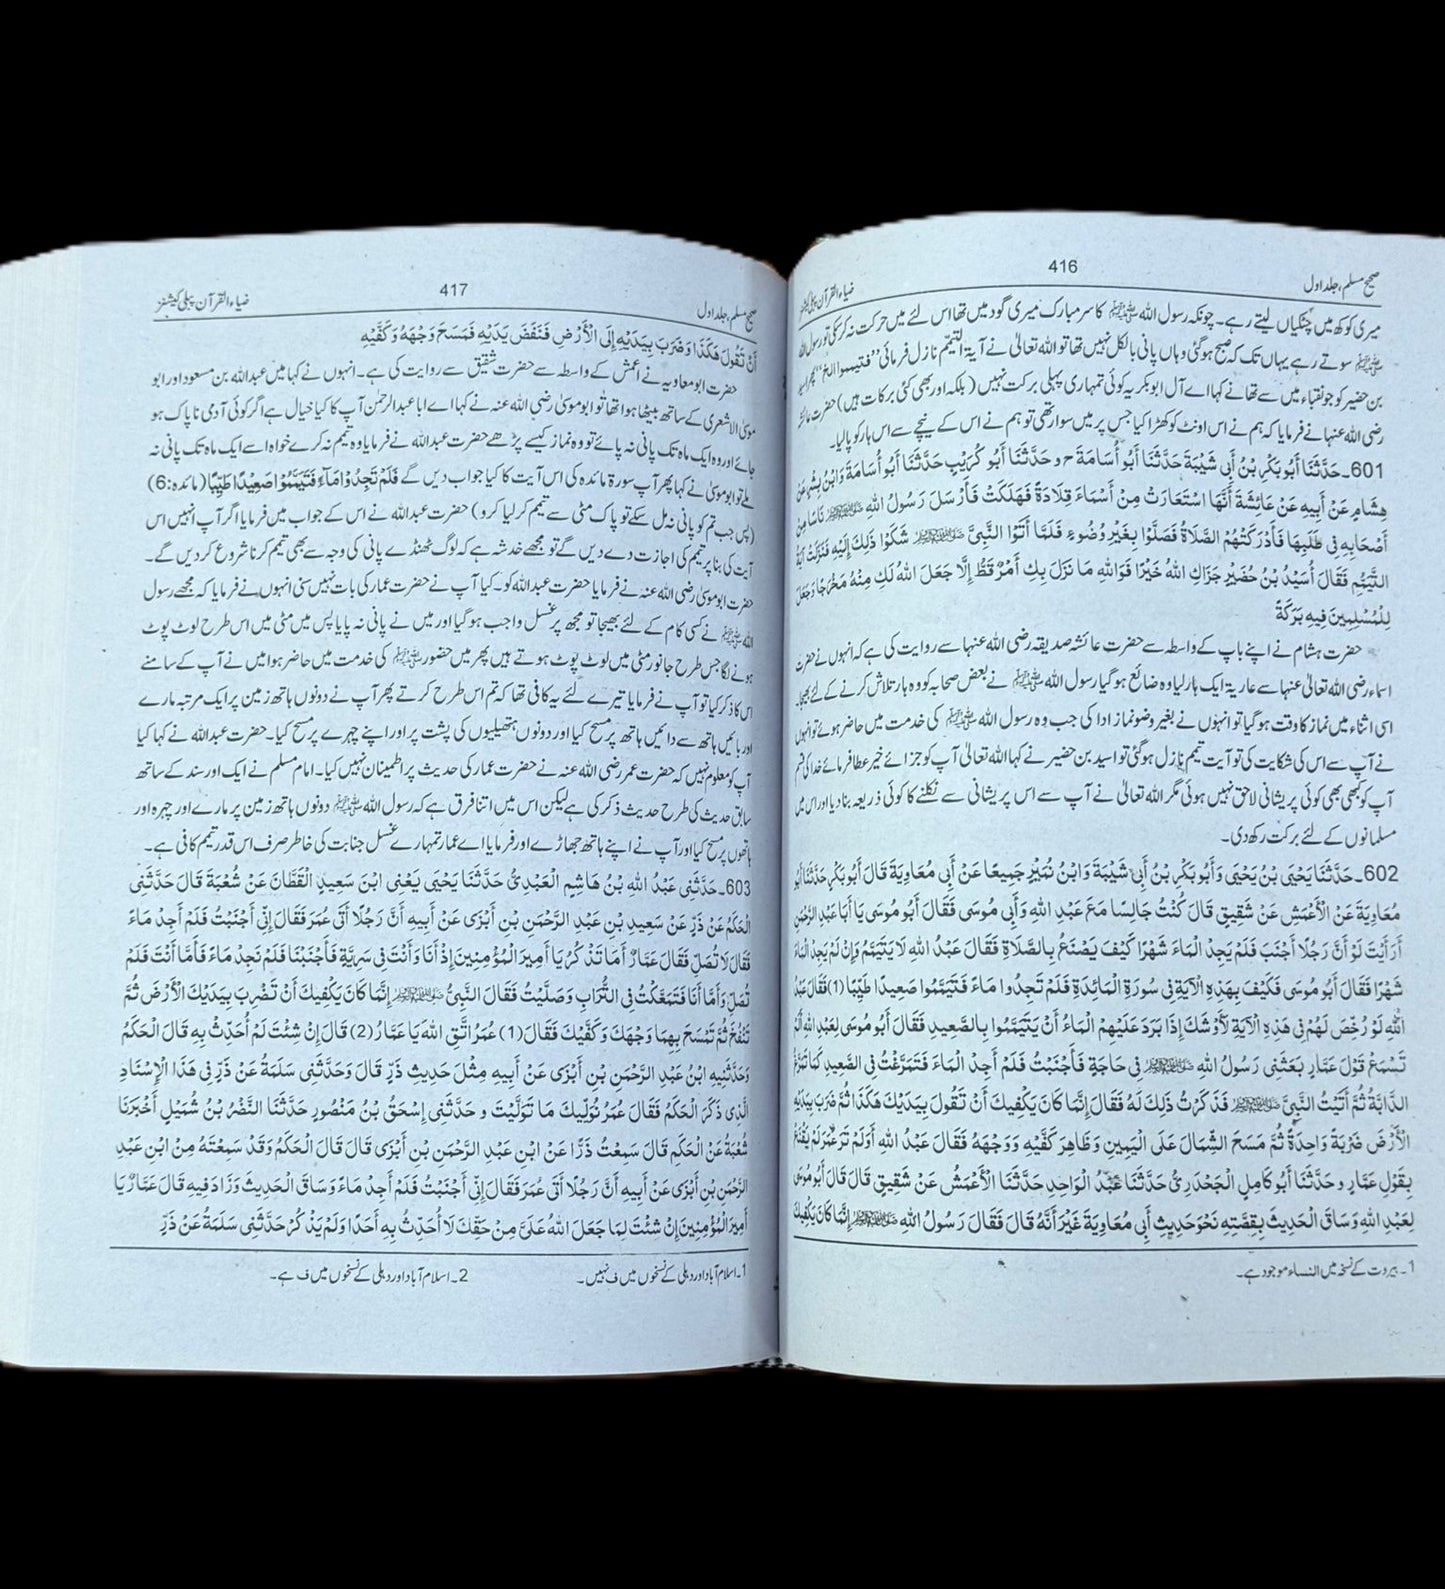 صحیح مسلم، جلد اول
416
ضیاء القرآن پبلی کیشنز
میری کوکھ میں چٹکیاں لیتے رہے۔ چونکہ رسول اللہ ﷺ کا سر مبارک میری گود میں تھا اس لئے میں حرکت نہ کر سکی تو رسول اللہ
ﷺ سوتے رہے یہاں تک کہ صبح ہو گئی وہاں پانی بالکل نہیں تھا تو اللہ تعالیٰ نے آیۃ التیمم نازل فرمائی ’’فتیمموا الخ‘‘ پھر اسید
بن حضیر کو جو نقباء میں سے تھا نے کہا اے آل ابو بکر یہ کوئی تمہاری پہلی برکت نہیں (بلکہ اور بھی کئی برکات ہیں) حضرت عائشہ
رضی اللہ عنہا نے فرمایا کہ ہم نے اس اونٹ کو کھڑا کیا جس پر میں سوار تھی تو ہم نے اس کے نیچے سے اس ہار کو پالیا۔
601۔ حَدَّثَنَا أَبُو بَكْرِ بْنُ أَبِي شَيْبَةَ حَدَّثَنَا أَبُو أُسَامَةَ ح و حَدَّثَنَا أَبُو كُرَيْبٍ حَدَّثَنَا أَبُو أُسَامَةَ وَابْنُ بِشْرٍ عَنْ
هِشَامٍ عَنْ أَبِيهِ عَنْ عَائِشَةَ أَنَّهَا اسْتَعَارَتْ مِنْ أَسْمَاءَ قِلَادَةً فَهَلَكَتْ فَأَرْسَلَ رَسُولُ اللهِ ﷺ نَاسًا مِنْ
أَصْحَابِهِ فِي طَلَبِهَا فَأَدْرَكَتْهُمُ الصَّلَاةُ فَصَلَّوْا بِغَيْرِ وُضُوءٍ فَلَمَّا أَتَوُا النَّبِيَّ ﷺ شَكَوْا ذَلِكَ إِلَيْهِ فَنَزَلَتْ آيَةُ
التَّيَمُّمِ فَقَالَ أُسَيْدُ بْنُ حُضَيْرٍ جَزَاكِ اللهُ خَيْرًا فَوَاللهِ مَا نَزَلَ بِكِ أَمْرٌ قَطُّ إِلَّا جَعَلَ اللهُ لَكِ مِنْهُ مَخْرَجًا وَجَعَلَ
لِلْمُسْلِمِينَ فِيهِ بَرَكَةً
حضرت ہشام نے اپنے باپ کے واسطہ سے حضرت عائشہ صدیقہ رضی اللہ عنہا سے روایت کی ہے کہ انہوں نے حضرت
اسماء رضی اللہ تعالیٰ عنہا سے عاریۃ ایک ہار لیا وہ ضائع ہو گیا رسول اللہ ﷺ نے بعض صحابہ کو وہ ہار تلاش کرنے کے لئے بھیجا۔
اسی اثناء میں نماز کا وقت ہو گیا تو انہوں نے بغیر وضو نماز ادا کی جب وہ رسول اللہ ﷺ کی خدمت میں حاضر ہوئے تو انہوں
نے آپ سے اس کی شکایت کی تو آیت تیمم نازل ہو گئی تو اسید بن حضیر نے کہا اللہ تعالیٰ آپ کو جزائے خیر عطا فرمائے خدا کی قسم
آپ کو کبھی بھی کوئی پریشانی لاحق نہیں ہوئی مگر اللہ تعالیٰ نے آپ سے اس پریشانی سے نکلنے کا کوئی ذریعہ بنا دیا اور اس میں
مسلمانوں کے لئے برکت رکھ دی۔
602۔ حَدَّثَنَا يَحْيَى بْنُ يَحْيَى وَأَبُو بَكْرِ بْنُ أَبِي شَيْبَةَ وَابْنُ نُمَيْرٍ جَمِيعًا عَنْ أَبِي مُعَاوِيَةَ قَالَ أَبُو بَكْرٍ حَدَّثَنَا أَبُو
مُعَاوِيَةَ عَنْ الْأَعْمَشِ عَنْ شَقِيقٍ قَالَ كُنْتُ جَالِسًا مَعَ عَبْدِ اللهِ وَأَبِي مُوسَى فَقَالَ أَبُو مُوسَى يَا أَبَا عَبْدِ الرَّحْمَنِ
أَرَأَيْتَ لَوْ أَنَّ رَجُلًا أَجْنَبَ فَلَمْ يَجِدِ الْمَاءَ شَهْرًا كَيْفَ يَصْنَعُ بِالصَّلَاةِ فَقَالَ عَبْدُ اللهِ لَا يَتَيَمَّمُ وَإِنْ لَمْ يَجِدِ الْمَاءَ
شَهْرًا فَقَالَ أَبُو مُوسَى فَكَيْفَ بِهَذِهِ الْآيَةِ فِي سُورَةِ الْمَائِدَةِ فَلَمْ تَجِدُوا مَاءً فَتَيَمَّمُوا صَعِيدًا طَيِّبًا (1) فَقَالَ عَبْدُ
اللهِ لَوْ رُخِّصَ لَهُمْ فِي هَذِهِ الْآيَةِ لَأَوْشَكَ إِذَا بَرَدَ عَلَيْهِمُ الْمَاءُ أَنْ يَتَيَمَّمُوا بِالصَّعِيدِ فَقَالَ أَبُو مُوسَى لِعَبْدِ اللهِ أَلَمْ
تَسْمَعْ قَوْلَ عَمَّارٍ بَعَثَنِي رَسُولُ اللهِ ﷺ فِي حَاجَةٍ فَأَجْنَبْتُ فَلَمْ أَجِدِ الْمَاءَ فَتَمَرَّغْتُ فِي الصَّعِيدِ كَمَا تَمَرَّغُ
الدَّابَّةُ ثُمَّ أَتَيْتُ النَّبِيَّ ﷺ فَذَكَرْتُ ذَلِكَ لَهُ فَقَالَ إِنَّمَا كَانَ يَكْفِيكَ أَنْ تَقُولَ بِيَدَيْكَ هَكَذَا ثُمَّ ضَرَبَ بِيَدَيْهِ
الْأَرْضَ ضَرْبَةً وَاحِدَةً ثُمَّ مَسَحَ الشِّمَالَ عَلَى الْيَمِينِ وَظَاهِرَ كَفَّيْهِ وَوَجْهَهُ فَقَالَ عَبْدُ اللهِ أَوَلَمْ تَرَ عُمَرَ لَمْ يَقْنَعْ
بِقَوْلِ عَمَّارٍ و حَدَّثَنَا أَبُو كَامِلٍ الْجَحْدَرِيُّ حَدَّثَنَا عَبْدُ الْوَاحِدِ حَدَّثَنَا الْأَعْمَشُ عَنْ شَقِيقٍ قَالَ قَالَ أَبُو مُوسَى
لِعَبْدِ اللهِ وَسَاقَ الْحَدِيثَ بِقِصَّتِهِ نَحْوَ حَدِيثِ أَبِي مُعَاوِيَةَ غَيْرَ أَنَّهُ قَالَ فَقَالَ رَسُولُ اللهِ ﷺ إِنَّمَا كَانَ يَكْفِيكَ
1۔ بیروت کے نسخہ میں النساء موجود ہے۔
صحیح مسلم، جلد اول
417
ضیاء القرآن پبلی کیشنز
أَنْ تَقُولَ هَكَذَا وَضَرَبَ بِيَدَيْهِ إِلَى الْأَرْضِ فَنَفَضَ يَدَيْهِ فَمَسَحَ وَجْهَهُ وَكَفَّيْهِ
حضرت ابو معاویہ نے اعمش کے واسطہ سے حضرت شقیق سے روایت کی ہے۔ انہوں نے کہا میں عبد اللہ بن مسعود اور ابو
موسیٰ الاشعری کے ساتھ بیٹھا ہوا تھا تو ابو موسیٰ رضی اللہ عنہ نے کہا اے ابا عبد الرحمٰن آپ کا کیا خیال ہے اگر کوئی آدمی ناپاک ہو
جائے اور وہ ایک ماہ تک پانی نہ پائے تو وہ نماز کیسے پڑھے حضرت عبد اللہ نے فرمایا وہ تیمم نہ کرے خواہ اسے ایک ماہ تک پانی نہ
ملے تو ابو موسیٰ نے کہا پھر آپ سورۃ مائدہ کی اس آیت کا کیا جواب دیں گے فَلَمْ تَجِدُوْا مَآءً فَتَيَمَّمُوْا صَعِيْدًا طَيِّبًا (مائدہ:6)
(پس جب تم کو پانی نہ مل سکے تو پاک مٹی سے تیمم کر لیا کرو) حضرت عبد اللہ نے اس کے جواب میں فرمایا اگر آپ انہیں اس
آیت کی بنا پر تیمم کی اجازت دے دیں گے تو مجھے خدشہ ہے کہ لوگ ٹھنڈے پانی کی وجہ سے بھی تیمم کرنا شروع کر دیں گے۔
حضرت ابو موسیٰ رضی اللہ عنہ نے فرمایا حضرت عبد اللہ کو۔ کیا آپ نے حضرت عمار کی بات نہیں سنی انہوں نے فرمایا کہ مجھے رسول
اللہ ﷺ نے کسی کام کے لئے بھیجا تو مجھ پر غسل واجب ہو گیا اور میں نے پانی نہ پایا پس میں مٹی میں اس طرح لوٹ پوٹ
ہونے لگا جس طرح جانور مٹی میں لوٹ پوٹ ہوتے ہیں پھر میں حضور ﷺ کی خدمت میں حاضر ہوا میں نے آپ کے سامنے
اس کا ذکر کیا تو آپ نے فرمایا تیرے لئے یہ کافی تھا کہ تم اس طرح کرتے پھر آپ نے دونوں ہاتھ زمین پر ایک مرتبہ مارے
اور بائیں ہاتھ سے دائیں ہاتھ پر مسح کیا اور دونوں ہتھیلیوں کی پشت پر اور اپنے چہرے پر مسح کیا۔ حضرت عبد اللہ نے کہا کیا
آپ کو معلوم نہیں کہ حضرت عمر رضی اللہ عنہ نے حضرت عمار کی حدیث پر اطمینان نہیں کیا۔ امام مسلم نے ایک اور سند کے ساتھ
سابق حدیث کی طرح حدیث ذکر کی ہے لیکن اس میں اتنا فرق ہے کہ رسول اللہ ﷺ دونوں ہاتھ زمین پر مارے اور چہرہ اور
ہاتھوں پر مسح کیا اور آپ نے اپنے ہاتھ جھاڑے اور فرمایا اے عمار تمہارے غسل جنابت کی خاطر صرف اس قدر تیمم کافی ہے۔
603۔ حَدَّثَنِي عَبْدُ اللهِ بْنُ هَاشِمٍ الْعَبْدِيُّ حَدَّثَنَا يَحْيَى يَعْنِي ابْنَ سَعِيدٍ الْقَطَّانَ عَنْ شُعْبَةَ قَالَ حَدَّثَنِي
الْحَكَمُ عَنْ ذَرٍّ عَنْ سَعِيدِ بْنِ عَبْدِ الرَّحْمَنِ بْنِ أَبْزَى عَنْ أَبِيهِ أَنَّ رَجُلًا أَتَى عُمَرَ فَقَالَ إِنِّي أَجْنَبْتُ فَلَمْ أَجِدْ مَاءً
فَقَالَ لَا تُصَلِّ فَقَالَ عَمَّارٌ أَمَا تَذْكُرُ يَا أَمِيرَ الْمُؤْمِنِينَ إِذْ أَنَا وَأَنْتَ فِي سَرِيَّةٍ فَأَجْنَبْنَا فَلَمْ نَجِدْ مَاءً فَأَمَّا أَنْتَ فَلَمْ
تُصَلِّ وَأَمَّا أَنَا فَتَمَعَّكْتُ فِي التُّرَابِ وَصَلَّيْتُ فَقَالَ النَّبِيُّ ﷺ إِنَّمَا كَانَ يَكْفِيكَ أَنْ تَضْرِبَ بِيَدَيْكَ الْأَرْضَ ثُمَّ
تَنْفُخَ ثُمَّ تَمْسَحَ بِهِمَا وَجْهَكَ وَكَفَّيْكَ فَقَالَ (1) عُمَرُ اتَّقِ اللهَ يَا عَمَّارُ (2) قَالَ إِنْ شِئْتَ لَمْ أُحَدِّثْ بِهِ قَالَ الْحَكَمُ
وَحَدَّثَنِيهِ ابْنُ عَبْدِ الرَّحْمَنِ بْنِ أَبْزَى عَنْ أَبِيهِ مِثْلَ حَدِيثِ ذَرٍّ قَالَ وَحَدَّثَنِي سَلَمَةُ عَنْ ذَرٍّ فِي هَذَا الْإِسْنَادِ
الَّذِي ذَكَرَ الْحَكَمُ فَقَالَ عُمَرُ نُوَلِّيكَ مَا تَوَلَّيْتَ و حَدَّثَنِي إِسْحَقُ بْنُ مَنْصُورٍ حَدَّثَنَا النَّضْرُ بْنُ شُمَيْلٍ أَخْبَرَنَا
شُعْبَةُ عَنْ الْحَكَمِ قَالَ سَمِعْتُ ذَرًّا عَنْ ابْنِ عَبْدِ الرَّحْمَنِ بْنِ أَبْزَى قَالَ قَالَ الْحَكَمُ وَقَدْ سَمِعْتُهُ مِنْ ابْنِ عَبْدِ
الرَّحْمَنِ بْنِ أَبْزَى عَنْ أَبِيهِ أَنَّ رَجُلًا أَتَى عُمَرَ فَقَالَ إِنِّي أَجْنَبْتُ فَلَمْ أَجِدْ مَاءً وَسَاقَ الْحَدِيثَ وَزَادَ فِيهِ قَالَ عَمَّارٌ يَا
أَمِيرَ الْمُؤْمِنِينَ إِنْ شِئْتَ لِمَا جَعَلَ اللهُ عَلَيَّ مِنْ حَقِّكَ لَا أُحَدِّثُ بِهِ أَحَدًا وَلَمْ يَذْكُرْ حَدَّثَنِي سَلَمَةُ عَنْ ذَرٍّ
1۔ اسلام آباد اور دہلی کے نسخوں میں ف نہیں۔ 2۔ اسلام آباد اور دہلی کے نسخوں میں ف ہے۔